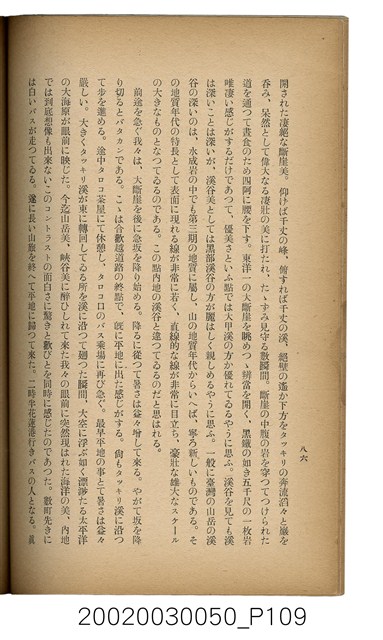 八六
開された凄絶な斷崖美。仰げば千丈の峰、俯すれば千丈の溪、絕壁の遙か下方をタッキリの奔流滔々と巖を
呑み、呆然として偉大なる凄壯の美に打たれ、たゞすみ見守る數瞬間。斷崖の中腹の岩を穿つてつけられた
道を通つて晝食のため四阿に腰を下す。東洋一の大斷崖を眺めつゝ辨當を開く、黑鐵の如き五千尺の一枚岩
唯凄い感じがするだけであつて、優美さといふ點では大甲溪の方が優れてゐるやうに思ふ。溪谷を見ても溪
は深いことは深いが、溪谷美としては黑部溪谷の方が麗はしく親しめるやうに思ふ。一般に臺灣の山岳の溪
谷の深いのは、水成岩の中でも第三期の地質に屬し、山の地質年代からいへば、寧ろ新しいものである。そ
の地質年代の特長として表面に現れる線が非常に若く、直線的な線が非常に目立ち、豪壯な雄大なスケール
の大きなものとなつてゐるのである。この點內地の溪谷と違つてゐるのだと思はれる。
前途を急ぐ我々は、大斷崖を後に急坂を降り始める。降るに從つて暑さは益々增して來る。やがて坂を降
り切るとバタカンである。こゝは合歡越道路の終點で、旣に平地に出た感じがする。尙もタッキリ溪に沿つ
て步を進める。途中タロコ茶屋にて休憩し、タロコ口のバス乘場に再び急ぐ。最早平地の事とて暑さは益々
嚴しい。大きくタッキリ溪が東に轉回してゐる所を溪に沿つて廻つた瞬間、大空に浮ぶ如く漂渺たる太平洋
の大海原が眼前に映じた。今迄山岳美、峽谷美に醉ひしれて來た我々の眼前に突然現はれた海洋の美、內地
では到底想像も出來ないこのコントラストの面白さに驚きと歡びとを同時に感じたのであつた。數町先きに
は白いバスが走つてゐる。遂に長い山旅を終へて平地に歸つて來た。二時半花蓮港行きバスの人となる。眞
20020030050_P109